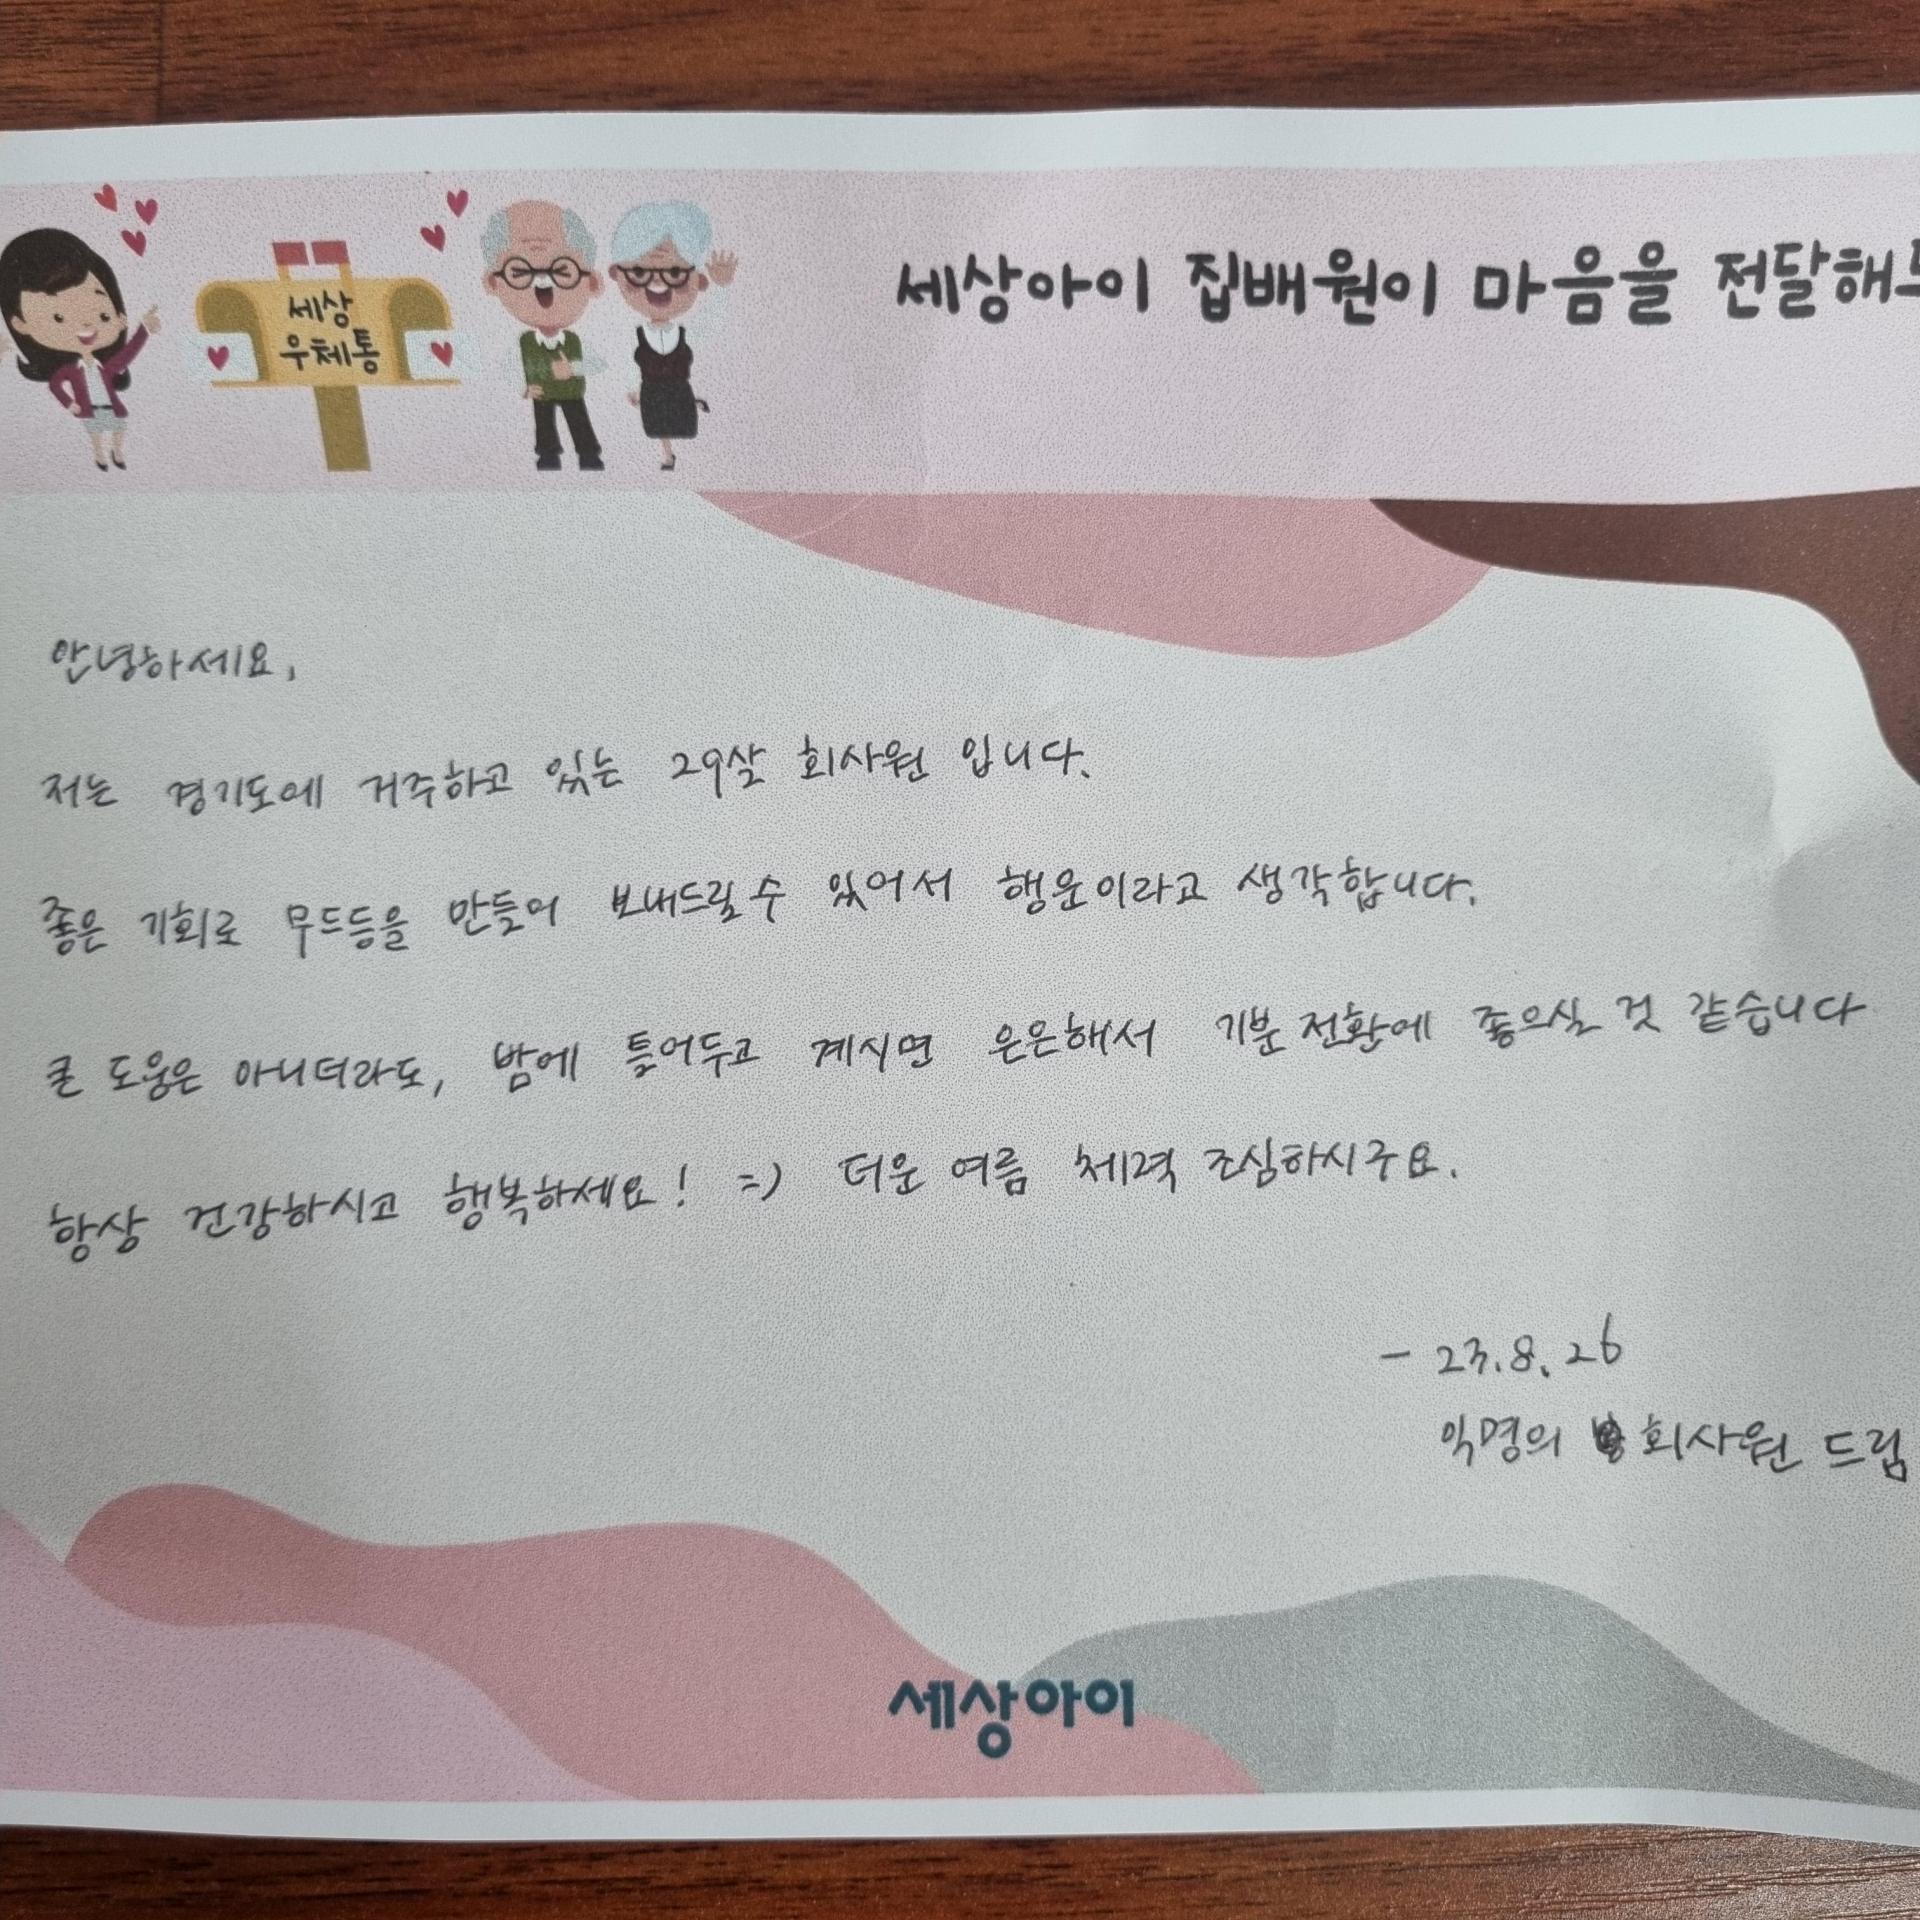 세상
우체통
세상아이 집배원이 마음을 전달해
안녕하세요,
저는 경기도에 거주하고 있는 29살 회사원 입니다.
좋은 기회로 무드등을 만들어 보내드릴수 있어서 행운이라고 생각합니다.
큰 도움은 아니더라도, 밤에 틀어두고 계시면 은은해서 기분전환에 좋으실 것 같습니다
항상 건강하시고 행복하세요! =) 더운 여름 체력 조심하시구요.
- 23.8.26
익명의 회사원 드림
세상아이